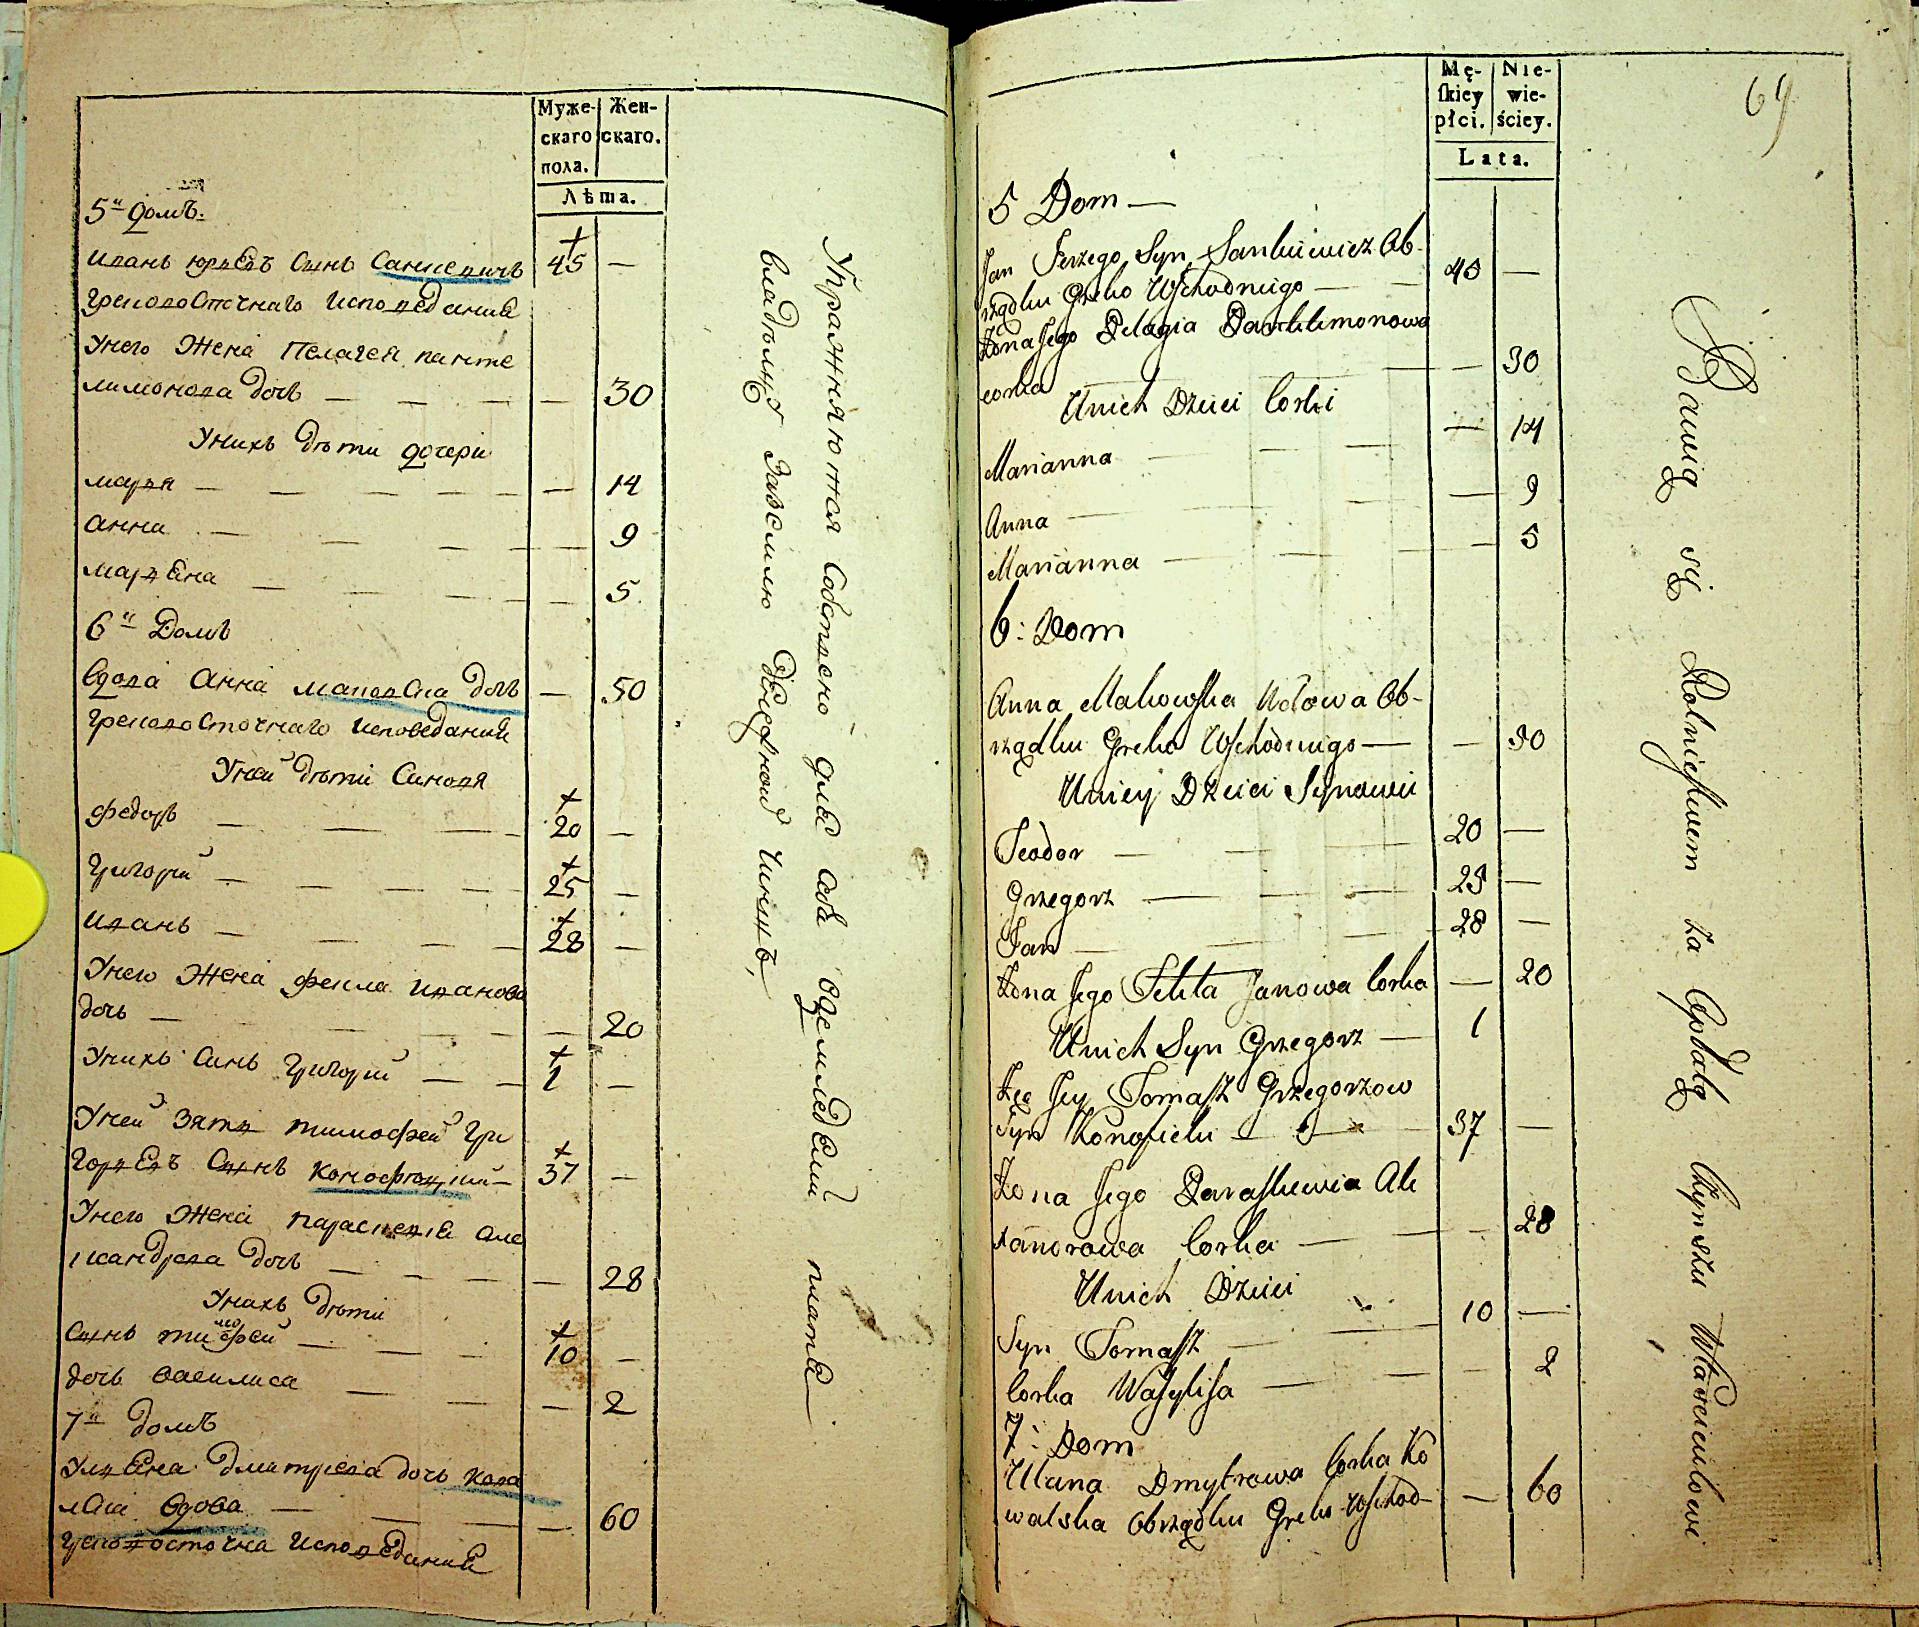 Муже-
скаго
пола.
Жен-
скаго.
Лѣта.
5й домъ.
Иванъ Юрьевъ Сынъ Санкевичъ 45 —
Грековосточнаго Исповедание
Унего Жена Пелагея панте
лимонова дочь — — — — — 30
Унихъ дѣти дочери
Марья — — — — — — 14
Анна — — — — — 9
Марьена — — — — 5
6й Домъ
Вдова Анна Маковска дочь — 50
Грековосточнаго Исповедание
Уней дѣти Синовя
Федоръ — — — — 20 —
Григорий — — — — — 25 —
Иванъ — — — — 28 —
Унего Жена Фекла Иванова
дочь — — — — — 20
Унихъ Синъ Григорий — — 1 —
Уней Зять Тимофей Гри
горьевъ Сынъ Конофоцкий — 37 —
Унего Жена Параскевие Але
ксандрова дочь — — — — — 28
Унихъ дѣти
Сынъ Тимофей — — — — 10 —
дочь Василиса — — — 2
7й домъ
Ульена Дмитрева дочь Кова
лска Вдова — — — — 60
Грековосточна Исповедание
Упражняются Собственно для себя воземледелии платя
владѣльцу заземлю денежной чиншъ,
69
Mę-
skiey
płci.
Nie-
wie-
ściey.
Lata.
5 Dom —
Jan Jerzego Syn Sankiewicz Ob-
rządku Greko Wschodniego — — 45 —
Żona Jego Pelagia Pantelimonowa
corka — — — 30
Unich Dzieci Corki
Marianna — — — 14
Anna — — — 9
Marianna — — — 5
6: Dom
Anna Makowska Wdowa Ob-
rządku Greko Wschodniego — — 50
Uniey Dzieci Synowie
Teodor — — — 20 —
Grzegorz — — — 25 —
Jan — — — 28 —
Żona Jego Tekla Janowa Corka — 20
Unich Syn Grzegorz — 1
Zięć Jey Tomasz Grzegorzow
Syn Konofiecki — — — 37 —
Żona Jego Paraskiewia Ale
xandrowa Corka — — — 28
Unich Dzieci
Syn Tomasz — — 10 —
Corka Wasylisa — — — 2
7: Dom
Ulana Dmytrowa Corka Ko
walska Obrządku Greko Wschod- — 60
Bawią się Rolnictwem za Opłatą Czynszu Właścicielowi